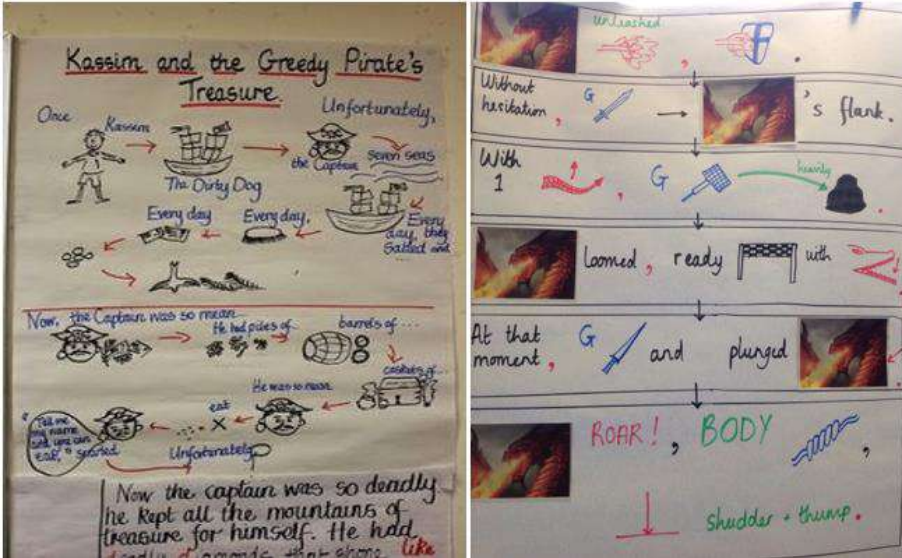 Kassim and the Greedy Pirate's
Treasure.
Once
Kassim
Unfortunately,
the Captain
seven seas
The Dirty Dog
Every day
Every day,
Every
day, they
sailed and ...
Now, the Captain was so mean...
He had piles of...
barrels of ...
caskets of...
He was so mean
eat
"Tell me
my name
and you can
eat," snarled
Unfortunately,
Now the captain was so deadly
he kept all the mountains of
treasure for himself. He had
deadly diamonds that shone like
unleashed
, .
Without
hesitation, G → 's flank.
With
1 , G heavily .
loomed, ready with
At that
moment, G and plunged .
ROAR! , BODY ,
shudder + thump.